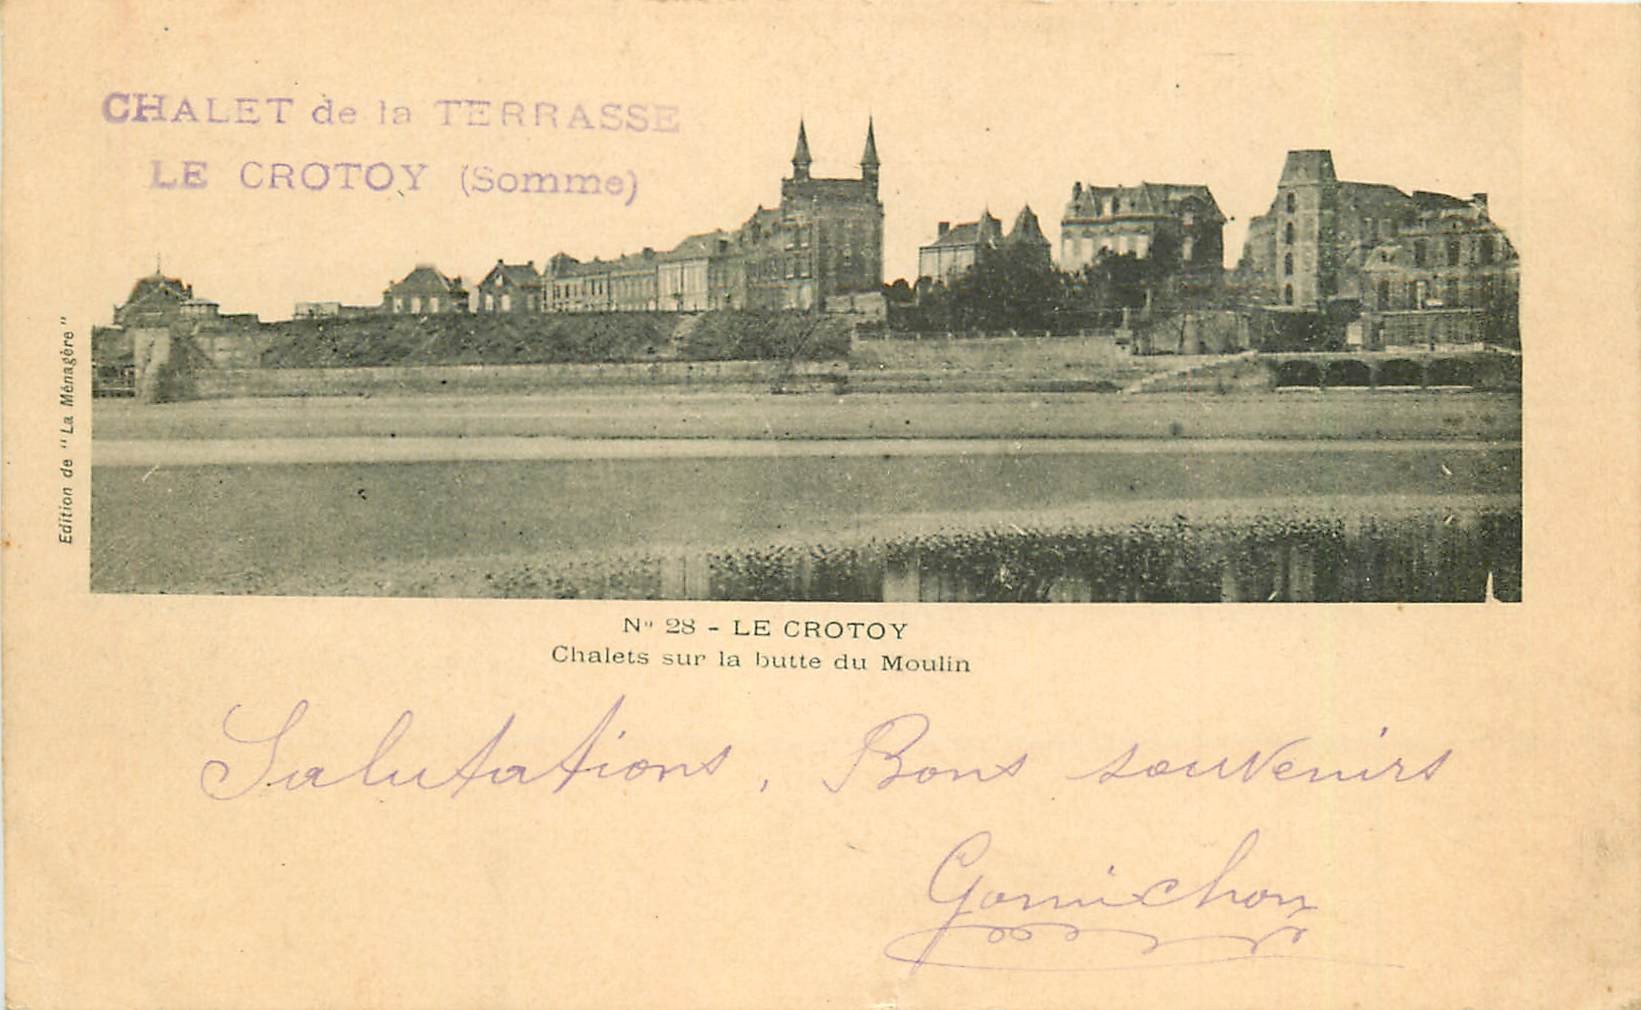 CHALET de la TERRASSE
LE CROTOY (Somme)
Edition de "La Ménagère"
No 28 - LE CROTOY
Chalets sur la butte du Moulin
Salutations, Bons souvenirs